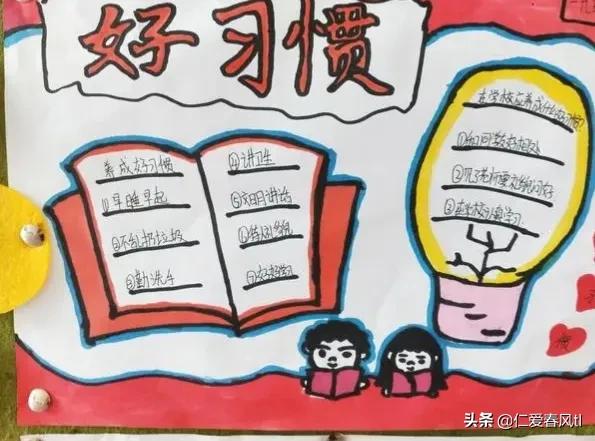 好习惯
养成好习惯
①早睡早起
②不乱扔垃圾
③勤洗手
④讲卫生
⑤文明讲话
⑦好好学习
在学校应养成什么好习惯?
①和同学好好相处
②见了老师要主动问好
③在学校认真学习
头条 @仁爱春风tl